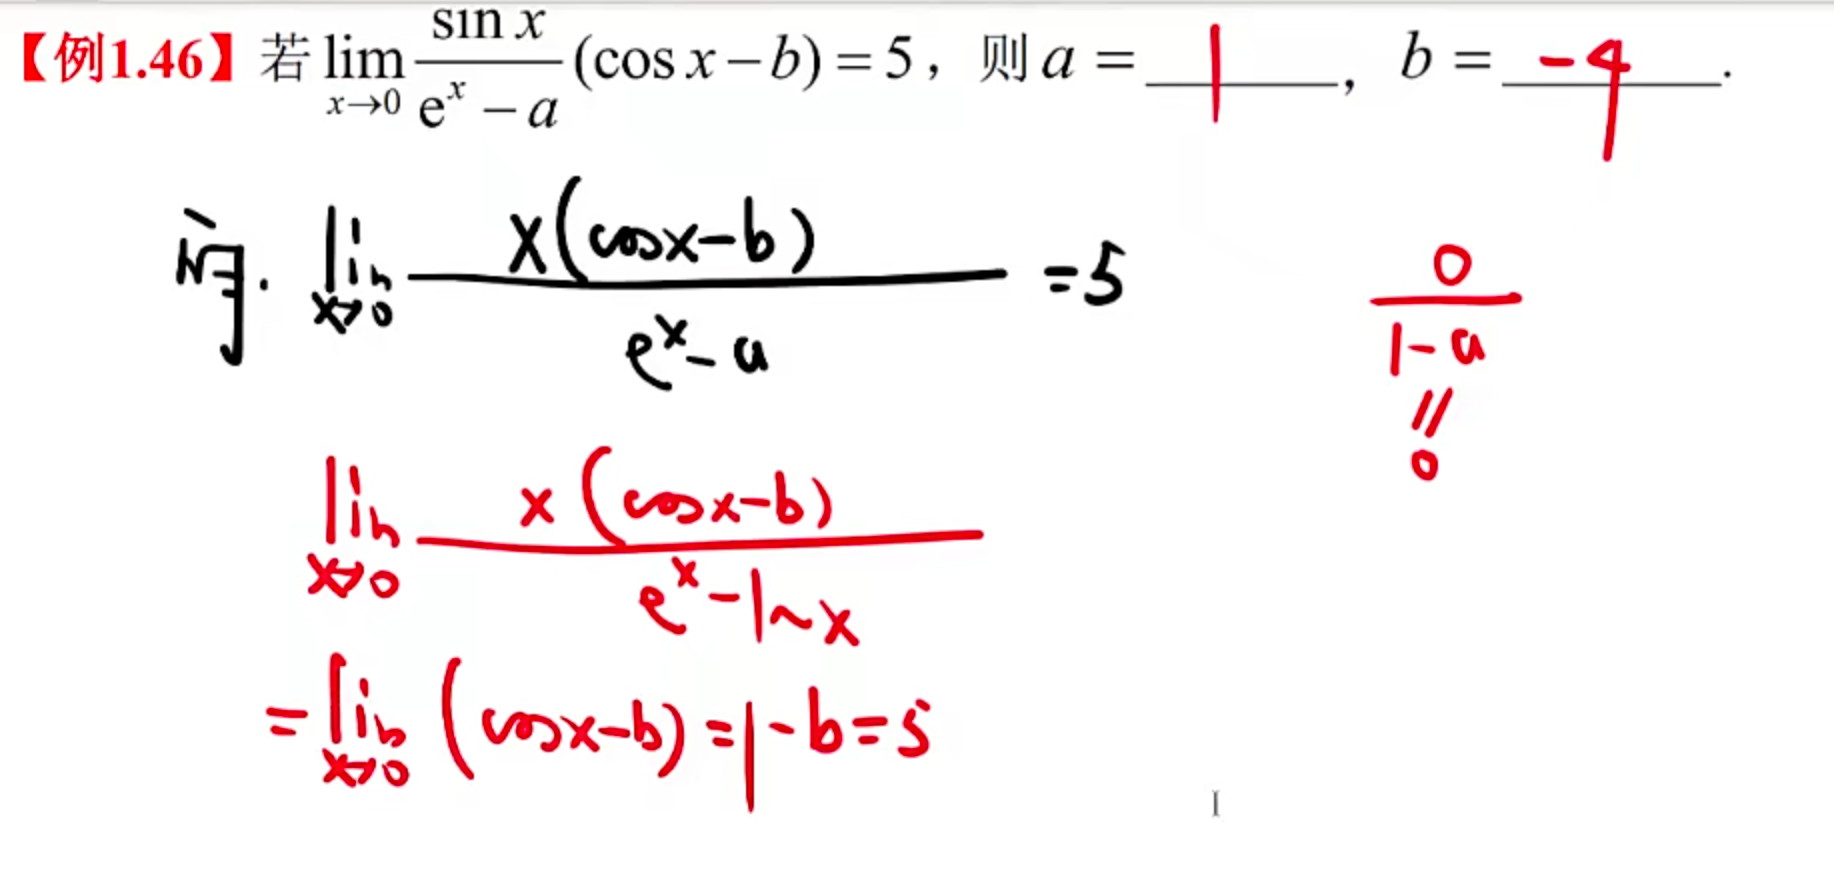 【例1.46】若 lim x→0 sin x / (e^x − a) (cos x − b) = 5，则 a = 1，b = −4.
lim x→0 x(cosx−b) / (e^x − a) = 5
0 / (1−a)
=
0
lim x→0 x(cosx−b) / (e^x − 1 ~ x)
= lim x→0 (cosx−b) = 1−b = 5